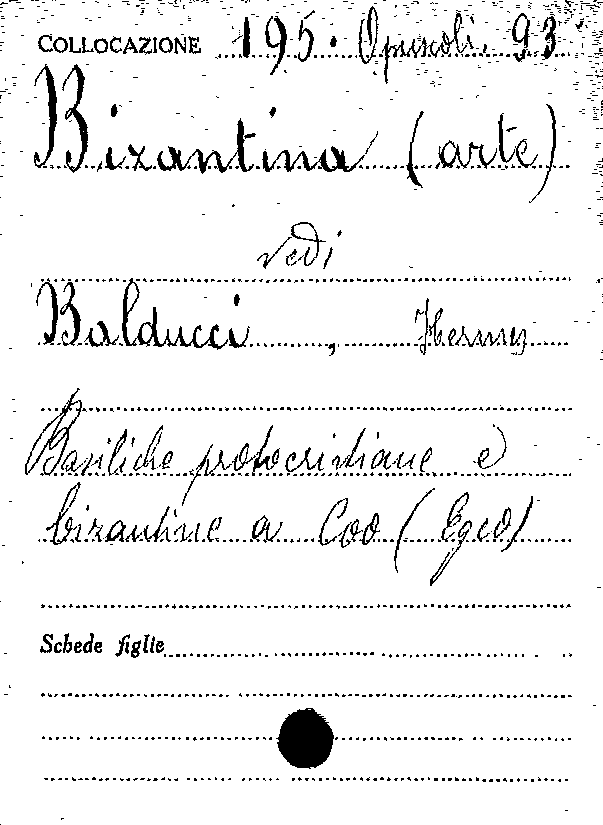 COLLOCAZIONE 195. Opuscoli. 93
Bizantina (arte)
vedi
Balducci , Hermes
Basiliche protocristiane e
bizantine a Coo (Egeo)
Schede figlie